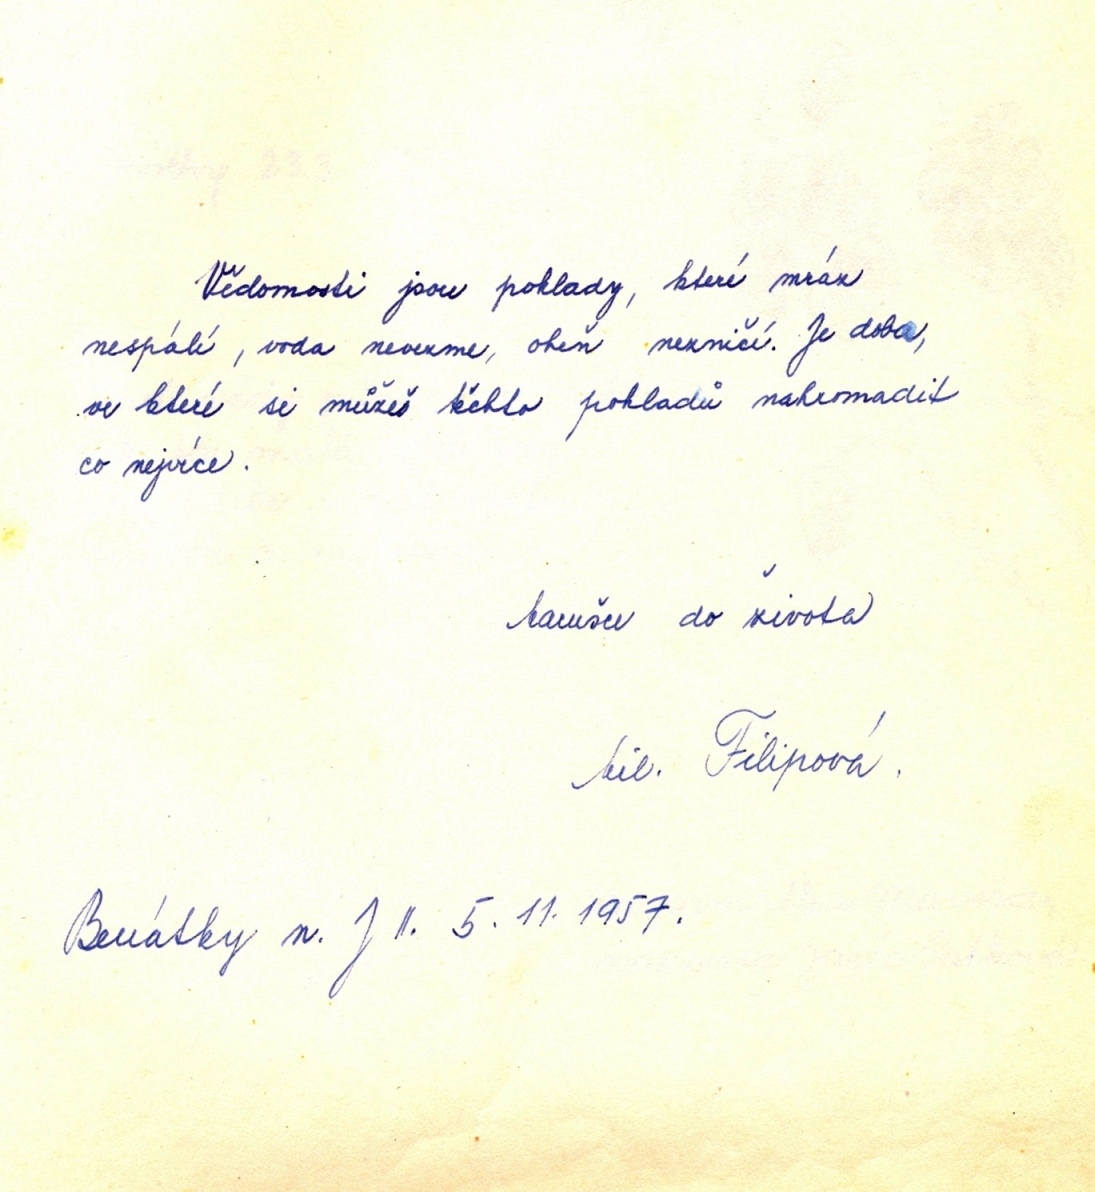 Vědomosti jsou poklady, které mráz
nespálí, voda nevezme, oheň nezničí. Je doba,
ve které si můžeš těchto pokladů nahromadit
co nejvíce.
Marušce do života
Mil. Filipová.
Benátky n. J II. 5. 11. 1957.